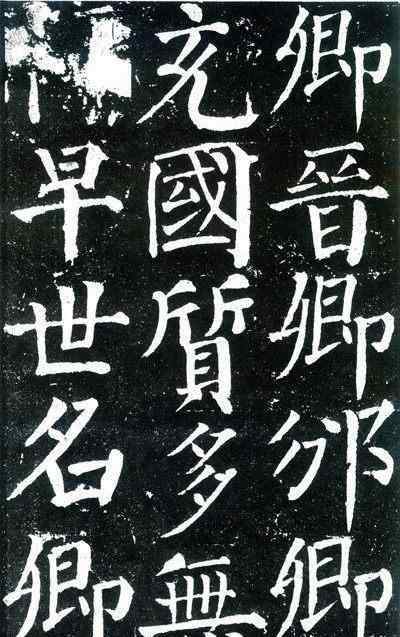 卿晉卿邠卿
充國質多無
早世名卿